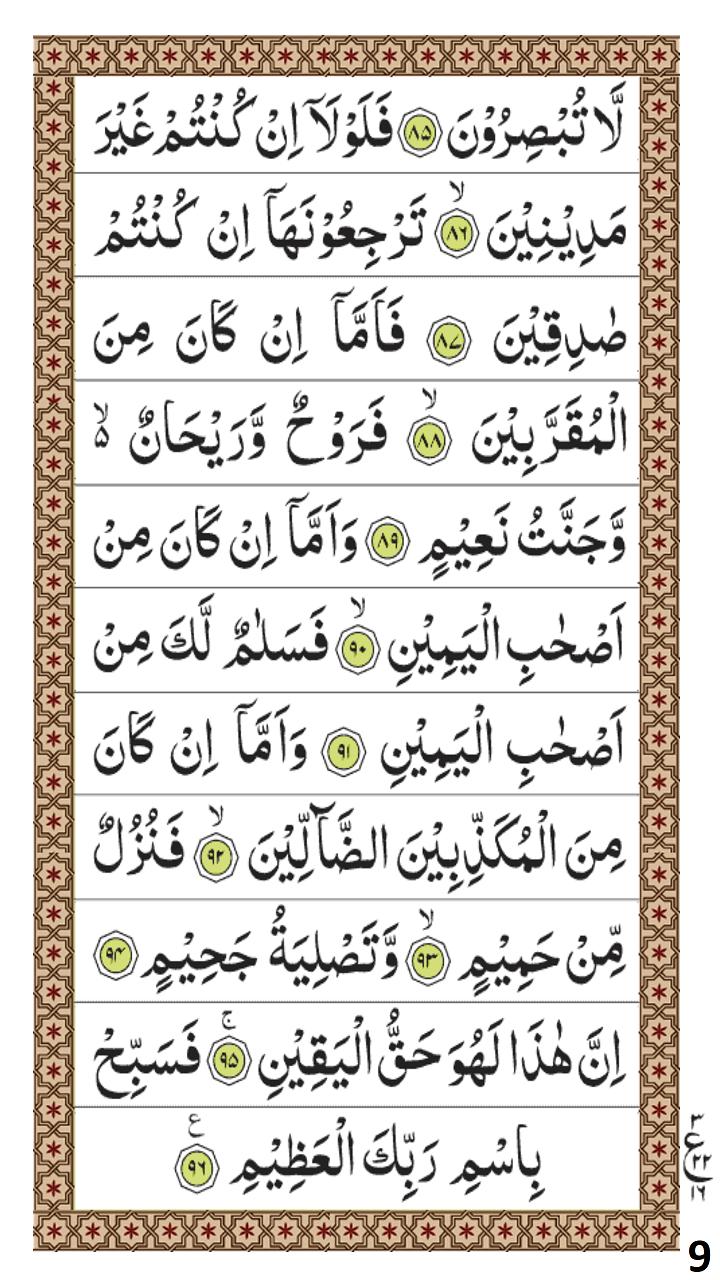 لَّا تُبْصِرُوْنَ ﴿۸۵﴾ فَلَوْلَاۤ اِنْ كُنْتُمْ غَيْرَ
مَدِيْنِيْنَ ۙ﴿۸۶﴾ تَرْجِعُوْنَهَاۤ اِنْ كُنْتُمْ
صٰدِقِيْنَ ﴿۸۷﴾ فَاَمَّاۤ اِنْ كَانَ مِنَ
الْمُقَرَّبِيْنَ ۙ﴿۸۸﴾ فَرَوْحٌ وَّرَيْحَانٌ ۬ۙ
وَّجَنَّتُ نَعِيْمٍ ﴿۸۹﴾ وَاَمَّاۤ اِنْ كَانَ مِنْ
اَصْحٰبِ الْيَمِيْنِ ۙ﴿۹۰﴾ فَسَلٰمٌ لَّكَ مِنْ
اَصْحٰبِ الْيَمِيْنِ ﴿۹۱﴾ وَاَمَّاۤ اِنْ كَانَ
مِنَ الْمُكَذِّبِيْنَ الضَّآلِّيْنَ ۙ﴿۹۲﴾ فَنُزُلٌ
مِّنْ حَمِيْمٍ ۙ﴿۹۳﴾ وَّتَصْلِيَةُ جَحِيْمٍ ﴿۹۴﴾
اِنَّ هٰذَا لَهُوَ حَقُّ الْيَقِيْنِ ۚ﴿۹۵﴾ فَسَبِّحْ
بِاسْمِ رَبِّكَ الْعَظِيْمِ ﴿۹۶﴾ ع
۳
ع
۲۲
۱۶
9